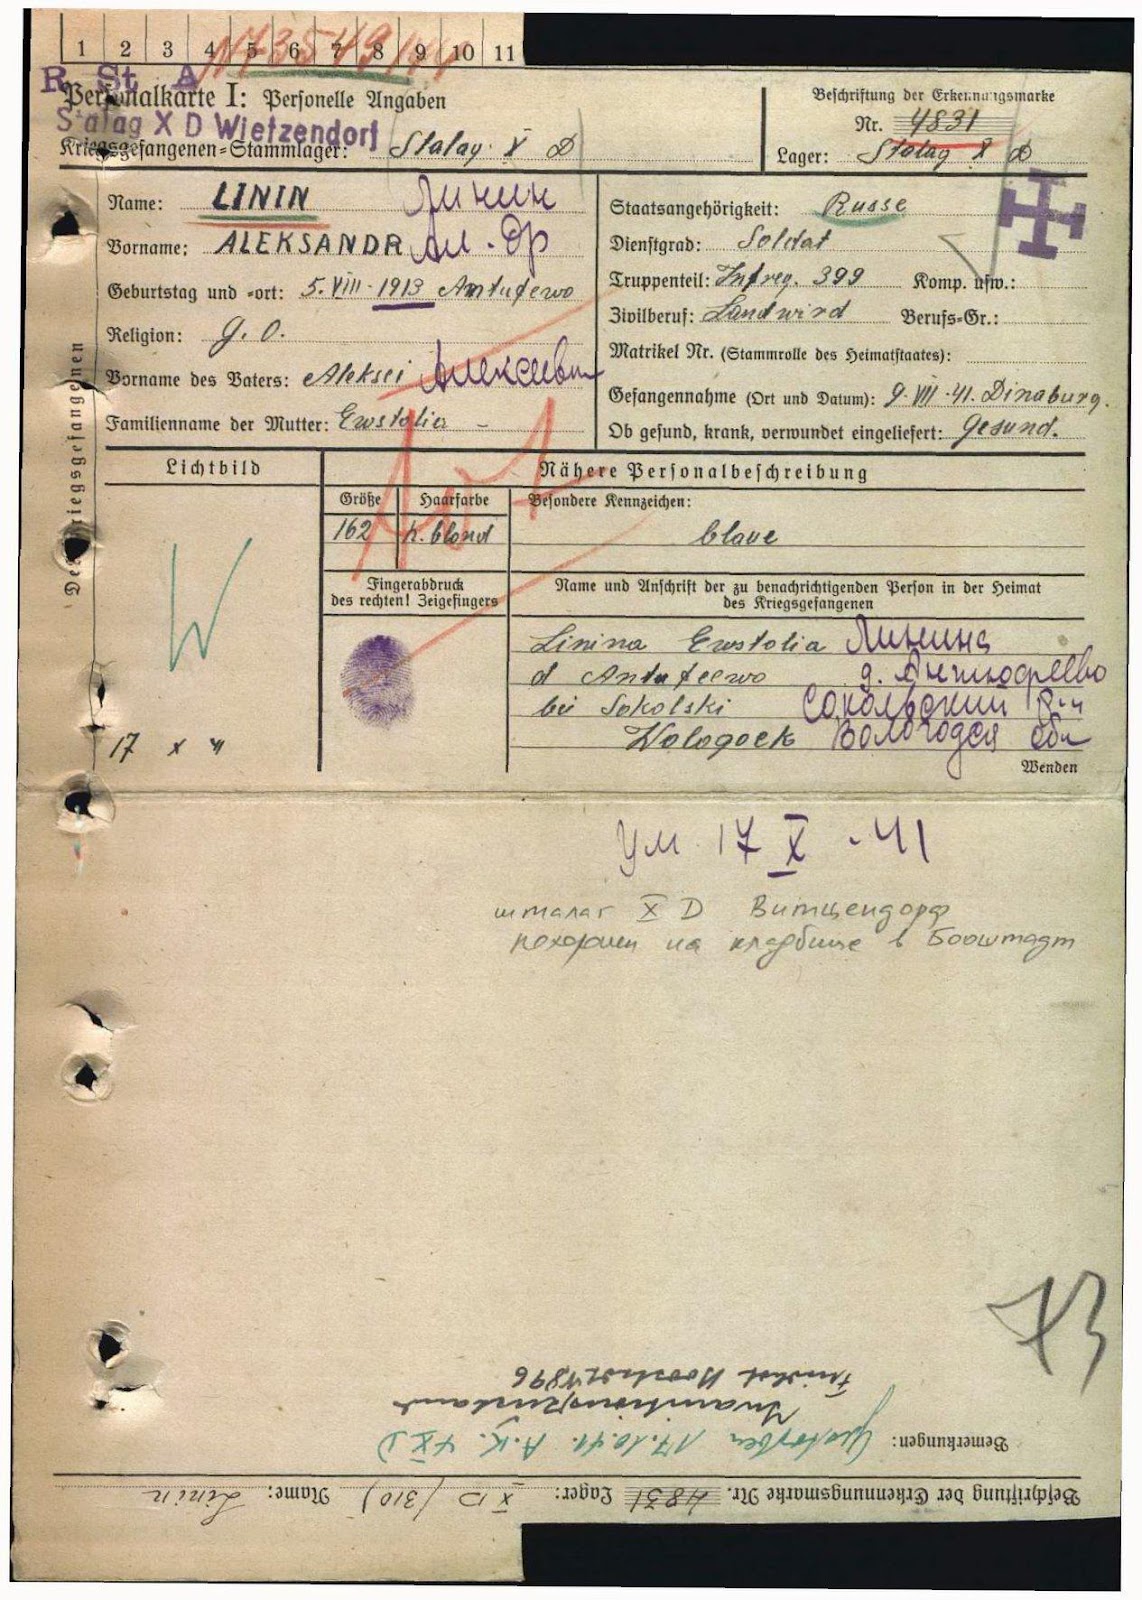 1 2 3 4 5 6 7 8 9 10 11
R. St A
Personalkarte I: Personelle Angaben
Stalag X D Wietzendorf
Kriegsgefangenen-Stammlager: Stalag X D
Beschriftung der Erkennungsmarke
Nr. 4831
Lager: Stalag X D
Name: LININ Линин
Vorname: ALEKSANDR Ал-др
Geburtstag und -ort: 5. VIII. 1913 Antufewo
Religion: g. o.
Vorname des Vaters: Aleksei Алексеевич
Familienname der Mutter: Ewstolia -
Staatsangehörigkeit: Russe
Dienstgrad: Soldat
Truppenteil: Inf reg. 399 Komp. usw.:
Zivilberuf: Landwird Berufs-Gr.:
Matrikel Nr. (Stammrolle des Heimatstaates):
Gefangennahme (Ort und Datum): 9. VII. 41. Dinaburg.
Ob gesund, krank, verwundet eingeliefert: Gesund.
Des Kriegsgefangenen
Lichtbild
17 X 41
Nähere Personalbeschreibung
Größe Haarfarbe Besondere Kennzeichen:
162 h. blond blaue
Fingerabdruck
des rechten! Zeigefingers
Name und Anschrift der zu benachrichtigenden Person in der Heimat
des Kriegsgefangenen
Linina Ewstolia Линина
d Antufeewo д. Антюфеево
bei Sokolski Сокольский р-н
Wologock Вологодся обл
Wenden
ум 17 X - 41
шталаг X D Витцендорф
похоронен на кладбище в Бооштадт
73
Beschriftung der Erkennungsmarke Nr. 4831 Lager: X D (310) Name: Linin
Bemerkungen: Gestorben 17.10.41. A.K. 4 X D
Friedhof